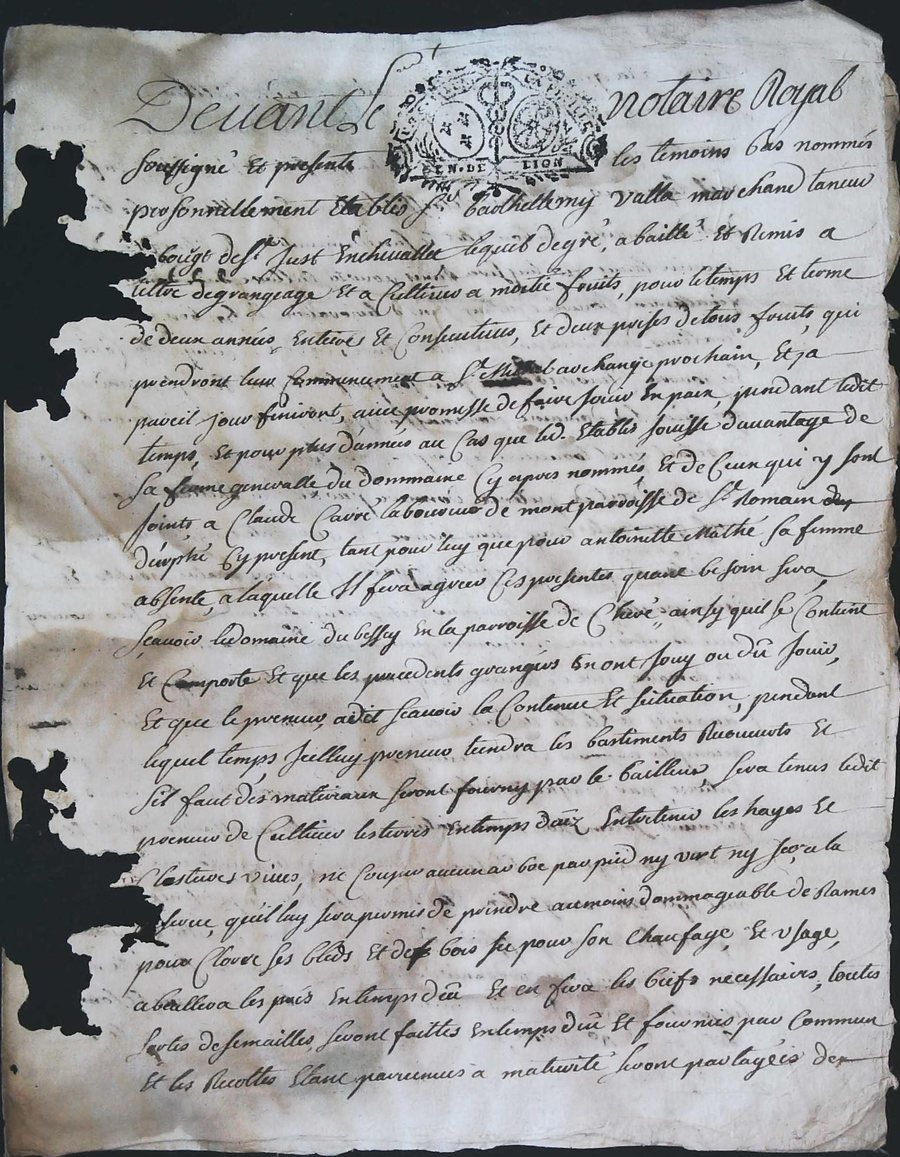 Devant Le notaire Royal
GEN. DE LION
soussigné Et presents les temoins bas nommés
personnellement Establis Sr barthellemy valla marchand taneur
bougt de St Just Enchevallet lequel de gré, a baillé Et Remis a
tiltre degrangeage Et a Cultiver a moitié fruits, pour le temps Et terme
de deux années, Entieres Et Consecutives, Et deux prises detous fruits, qui
prendront leur Commencement a St archange prochain, Et a
pareil jour finiront, avec promesse de faire Jouir En paix pendant ledit
temps, Et pour plus dannées au Cas que led. Establis Jouisse davantage de
sa ferme generalle du dommaine Cy apres nommés, Et de Ceux qui y sont
Joints, a Claude Carré laboureur de mont parroisse de St Romain
durphé Cy present, tant pour luy que pour antoinette Mathé sa femme
absente, a laquelle Il fera agreer Ces presentes quand besoin sera,
sçauoir ledomaine du bessey En la parroisse de Cheré, ainsy quil se Contient
Et Comporte Et que les precedents grangers En ont Jouy ou dû Jouir,
Et que le preneur, a dit sçauoir la Contenue Et situation, pendant
lequel temps Jcelluy preneur tiendra les bastiments Recouverts Et
sil faut des materiaux seront fourny par le bailleur, sera tenus ledit
preneur de Cultiver lesterres Entemps dûz Entretenir les hayes Et
Clostures vives, ne Couper aucun arbre par pied ny vert ny sec, a la
reserve, qu'il luy sera permis de prendre aumoins dommageable de Rames
pour Clorre ses bleds Et de bois sec pour son Chaufage, Et vsage,
abeallera les prés Entemps dû Et en fera les biefs necessaires, toutes
sortes de semailles, seront faittes Entemps dû Et fournies par Commun
Et les Recoltes Etant parvenues a maturité seront partagées de